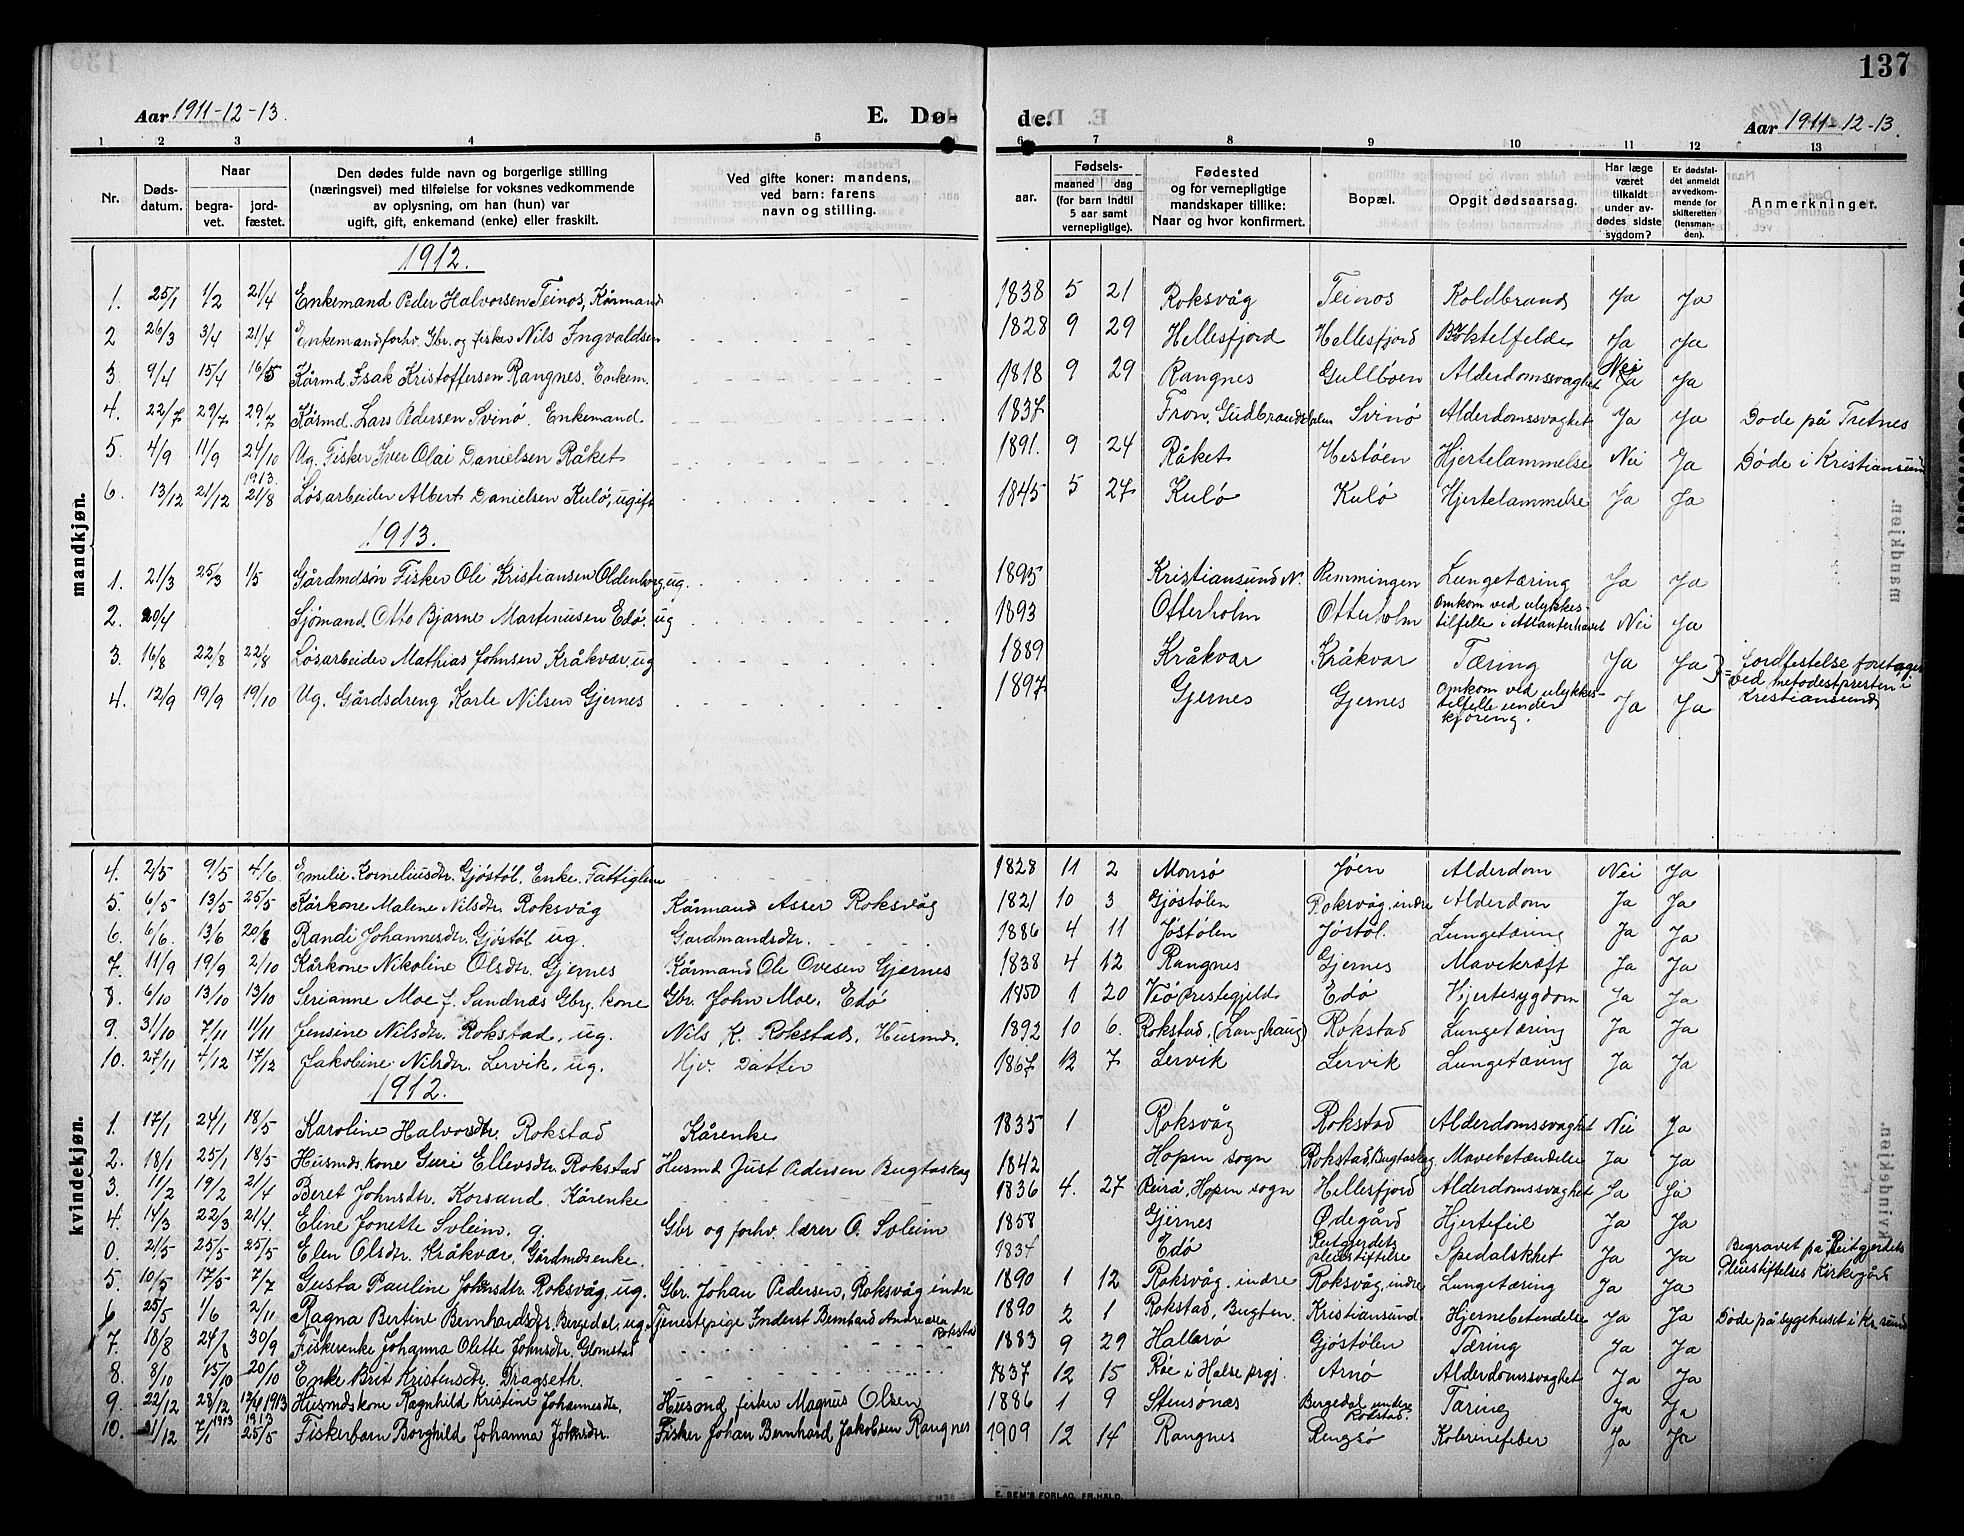 137
Aar 1911-12-13.
E. Dø-
de.
Aar 1911-12-13.
1 2 3 4 5 6 7 8 9 10 11 12 13
Nr.
Døds-
datum.
Naar
begra-
vet.
jord-
fæstet.
Den dødes fulde navn og borgerlige stilling
(næringsvei) med tilføielse for voksnes vedkommende
av oplysning, om han (hun) var
ugift, gift, enkemand (enke) eller fraskilt.
Ved gifte koner: mandens,
ved barn: farens
navn og stilling.
Fødsels-
aar.
maaned dag
(for barn indtil
5 aar samt
vernepligtige).
Fødested
og for vernepligtige
mandskaper tillike:
Naar og hvor konfirmert.
Bopæl.
Opgit dødsaarsag.
Har læge
været
tilkaldt
under av-
dødes sidste
sygdom?
Er dødsfal-
det anmeldt
av vedkom-
mende for
skifteretten
(lensman-
den).
Anmerkninger.
mandkjøn.
1912.
1. 25/1 1/2 21/4 Enkemand Peder Halvorsen Teinos, Kårmand 1838 5 21 Roksvåg Teinos Koldbrand Ja Ja
2 26/3 3/4 21/4 Enkemand forhv. Gbr. og fisker Nils Ingvaldsen 1828 9 29 Hellesfjord Hellesfjord Ja Ja
3. 9/4 15/4 16/5 Kårmd. Isak Kristoffersen Rangnes. Enkem. 1818 9 29 Rangnes Gullbøen Alderdomssvaghet Nei Ja
4. 22/7 29/7 29/7 Kårmd. Lars Pedersen Svinø. Enkemand 1837 Fron, Gudbrandsdalen Svinø Alderdomssvaghet Ja Ja Døde på Tretnes
5. 4/9 11/9 24/10 Ug. Fisker Iver Olai Danielsen Råket 1891. 9 24 Råket Hestøen Hjertelammelse Nei Ja Døde i Kristiansund
6. 13/12 21/12 1913. 21/8 Løsarbeider Albert Danielsen Kulø, ugift 1845 5 24 Kulø Kulø Hjertelammelse Ja Ja
1913.
1. 21/3 25/3 1/5 Gårdmdsøn Fisker Ole Kristiansen Oldenborg, ug. 1895 Kristiansund N. Remmingen Lungetæring Ja Ja
2. 20/4 Sjømand Otto Bjarne Martinusen Edø, ug 1893 Otterholm Otterholm Omkom ved ulykkes-
tilfelle i Atlanterhavet Nei Ja
3. 16/8 22/8 22/8 Løsarbeider Mathias Johnsen Kråkvær, ug 1889 Kråkvær Kråkvær Tæring Ja Ja Jordfestelse foretaget
ved metodestpresten i
Kristiansund
4. 12/9 19/9 19/10 Ug. Gårdsdreng Karle Nilsen Gjernes 1897 Gjernes Gjernes Omkom ved ulykkes-
tilfelle under
kjøring. Ja Ja
kvindekjøn.
4. 2/5 9/5 4/6 Emilie Korneliusdtr. Gjøstøl, Enke. Fattiglem 1828 11 2 Monsø Jøen Alderdom Nei Ja
5. 6/5 13/5 25/5 Kårkone Malene Nilsdtr. Roksvåg Kårmand Asser Roksvåg 1821 10 3 Gjøstølen Roksvåg, indre Alderdom Ja Ja
6. 6/6. 13/6 Randi Johannesdtr. Gjøstøl ug. Gardmandsdtr. 1886 4 11 Jøstølen Jøstøl. Lungetæring Ja Ja
7. 11/9 19/9 2/10 Kårkone Nikoline Olsdtr. Gjernes Kårmand Ole Ovesen Gjernes 1838 4 12 Rangnes Gjernes Mavekræft Ja Ja
8. 6/10 13/10 13/10 Serianne Moe f. Sandnæs Gbrg. kone Gbr. John Moe. Edø 1850 1 20 Veø prestegjeld Edø Hjertesygdom Ja Ja
9. 31/10 7/11 11/11 Jensine Nilsdtr. Rokstad, ug. Nils K. Rokstad, Husmd. 1892 10 6. Rokstad, (Langhaug) Rokstad Lungetæring Ja Ja
10. 27/11 4/12 17/12 Jakobine Nilsdtr. Lervik, ug. Hjv. Datter 1867 12 7 Lervik Lervik Lungetæring Ja Ja
1912.
1. 17/1 24/1 18/5 Karoline Halvorsdtr. Rokstad Kårenke 1835 1 Roksvåg Rokstad Alderdomssvaghet Nei Ja
2. 18/1 25/1 18/5 Husmds. kone Guri Ellevsdtr. Rokstad Husmd Just Pedersen Bugtaskag 1842 Hopen sogn Rokstad, Bugtaskag Mavebetændelse Ja Ja
3. 11/2 19/2 21/4 Beret Johnsdtr. Korsund. Kårenke 1836 4. 27 Reirå, Hopen sogn Hellesfjord Alderdomssvaghet Ja Ja
4. 14/3 22/3 21/4. Eline Jonette Solem. g. Gbr og forhv. lærer O. Solem 1858 Gjernes Ødegård Hjertefeil Ja Ja
0. 21/5 25/5 25/5 Elen Olsdtr. Kråkvær, Gårdmdsenke. 1834 Edø Reitgjerdets
pleiestiftelse Spedalskhet Ja Ja Begravet på Reitgjerdets
Pleiestiftelses Kirkegård
5. 10/5 17/5 7/7 Gusta Pauline Johnsdtr. Roksvåg, ug. Gbr. Johan Pedersen, Roksvåg indre 1890 1 12 Roksvåg, indre Roksvåg, indre Lungetæring Ja Ja
6 25/5 1/6 2/11 Ragna Bertine Bernhardsdtr. Bergedal, ug. Tjenestepige Inderst Bernhard Andreasen
Rokstad 1890 2 1 Rokstad, Bugten. Kristiansund Hjernebetendelse Ja Ja Døde på sygehuset i Kr.sund
7. 18/8 24/8 30/9 Fiskerenke Johanna Olette Johnsdtr. Glomstad 1883 9 29 Hallarø Gjøstølen Tæring Ja Ja
8. 8/10 15/10 20/10 Enke Brit Kristensdtr. Dragseth. 1837 12 15 Røe i Halse prgj. Arnø Alderdomssvaghet Ja Ja
9. 22/12 28/12 1913 Husmdskone Ragnhild Kristine Johannesdtr. Husmd fisker Magnus Olsen 1886 1 9 Stensønes Bergedal undre
Rokstad. Tæring Ja Ja
10. 31/12 7/1 1913 1913 25/5 Fiskerbarn Borghild Johanna Johnsdtr. Fisker Johan Bernhard Jakobsen Rangnes 1909 12 14 Rangnes Rengsø Ja Ja
E. SEM'S FORLAG, FR.HALD.